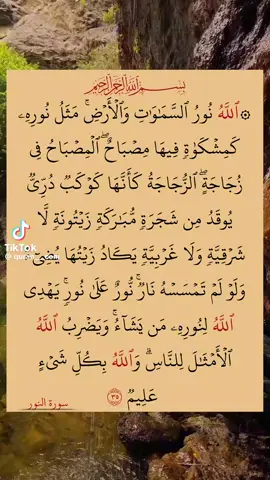 بِسْمِ ٱللَّهِ ٱلرَّحْمَٰنِ ٱلرَّحِيمِ
۞ ٱللَّهُ نُورُ ٱلسَّمَٰوَٰتِ وَٱلْأَرْضِۚ مَثَلُ نُورِهِۦ
كَمِشْكَوٰةٍ فِيهَا مِصْبَاحٌۖ ٱلْمِصْبَاحُ فِى
زُجَاجَةٍۖ ٱلزُّجَاجَةُ كَأَنَّهَا كَوْكَبٌ دُرِّىٌّ
يُوقَدُ مِن شَجَرَةٍ مُّبَٰرَكَةٍ زَيْتُونَةٍ لَّا
شَرْقِيَّةٍ وَلَا غَرْبِيَّةٍ يَكَادُ زَيْتُهَا يُضِىٓءُ
وَلَوْ لَمْ تَمْسَسْهُ نَارٌۚ نُّورٌ عَلَىٰ نُورٍۗ يَهْدِى
ٱللَّهُ لِنُورِهِۦ مَن يَشَآءُۚ وَيَضْرِبُ ٱللَّهُ
ٱلْأَمْثَٰلَ لِلنَّاسِۗ وَٱللَّهُ بِكُلِّ شَىْءٍ
عَلِيمٌ ٣٥
سورة النور
TikTok